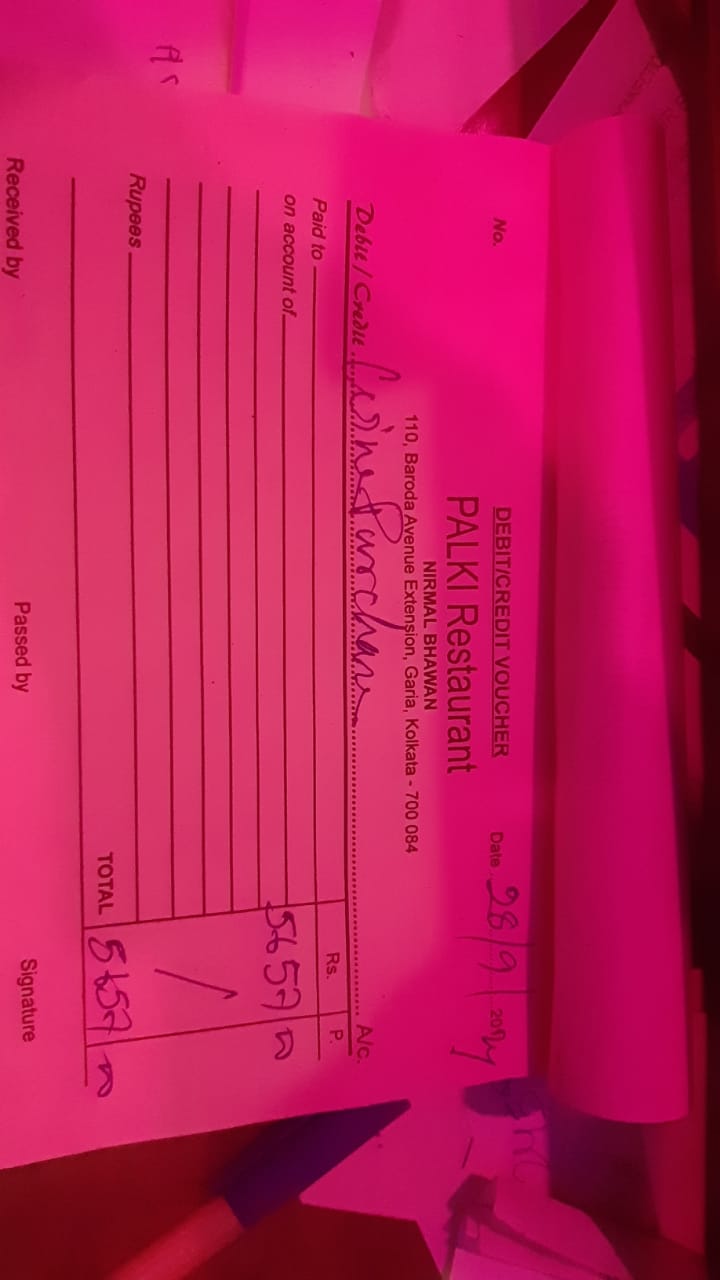 DEBIT/CREDIT VOUCHER
No. Date 28/9/2024
PALKI Restaurant
NIRMAL BHAWAN
110, Baroda Avenue Extension, Garia, Kolkata - 700 084
Debit / Credit Purchase A/c.
Paid to Rs. P.
on account of 5657 00
Rupees
TOTAL 5657 00
Received by Passed by Signature